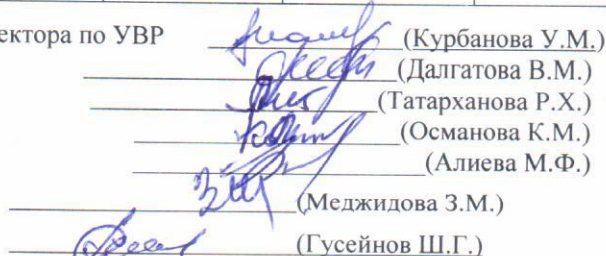 ектора по УВР (Курбанова У.М.)
(Далгатова В.М.)
(Татарханова Р.Х.)
(Османова К.М.)
(Алиева М.Ф.)
(Меджидова З.М.)
(Гусейнов Ш.Г.)